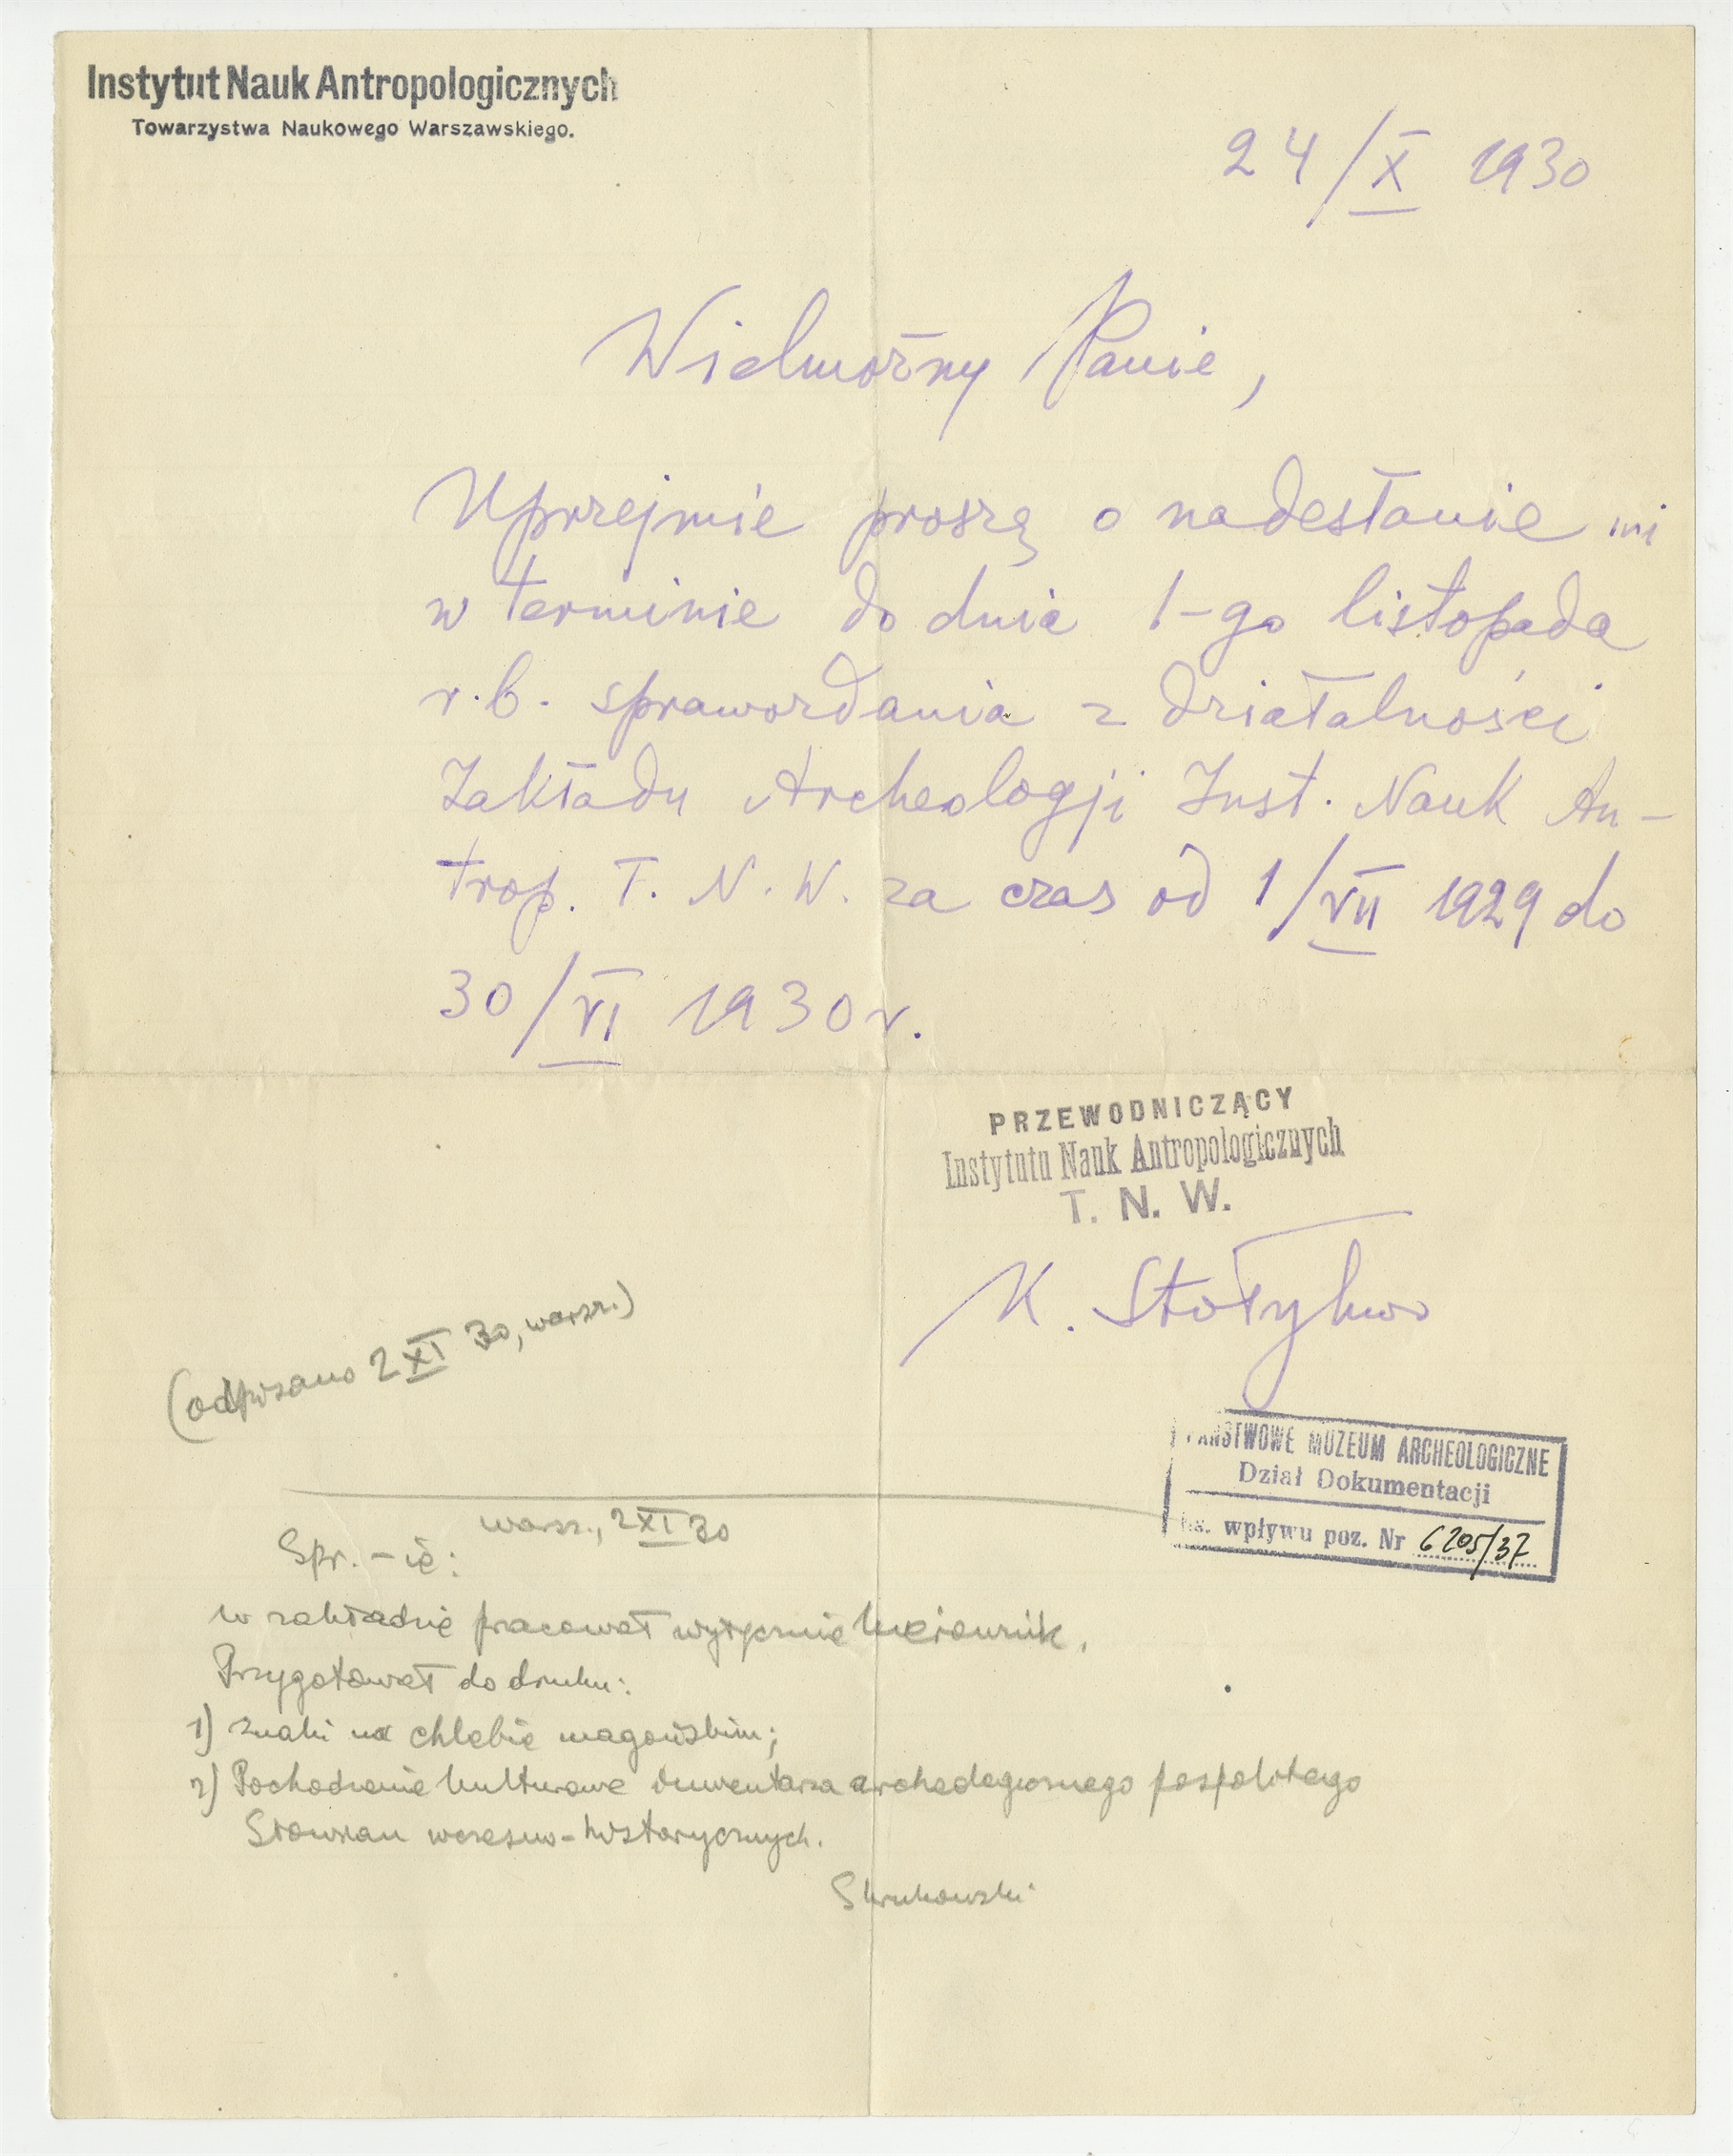 Instytut Nauk Antropologicznych
Towarzystwa Naukowego Warszawskiego.
24/X 1930
Wielmożny Panie,
Uprzejmie proszę o nadesłanie mi
w terminie do dnia 1-go listopada
r.b. sprawozdania z działalności
Zakładu Archeologji Inst. Nauk An-
trop. T. N. W. za czas od 1/VII 1929 do
30/VI 1930 r.
PRZEWODNICZĄCY
Instytutu Nauk Antropologicznych
T. N. W.
K. Stołyhwo
(odpisano 2 XI 30, warsz.)
PAŃSTWOWE MUZEUM ARCHEOLOGICZNE
Dział Dokumentacji
Ks. wpływu poz. Nr 6205/37
warsz., 2 XI 30
Spr. - ie:
w zakładzie pracował wyłącznie kierownik.
Przygotował do druku:
1) znaki na chlebie
2) Pochodzenie kulturowe inwentarza archeologicznego pospolitego
Słowian wczesno-historycznych.
Skrukowski